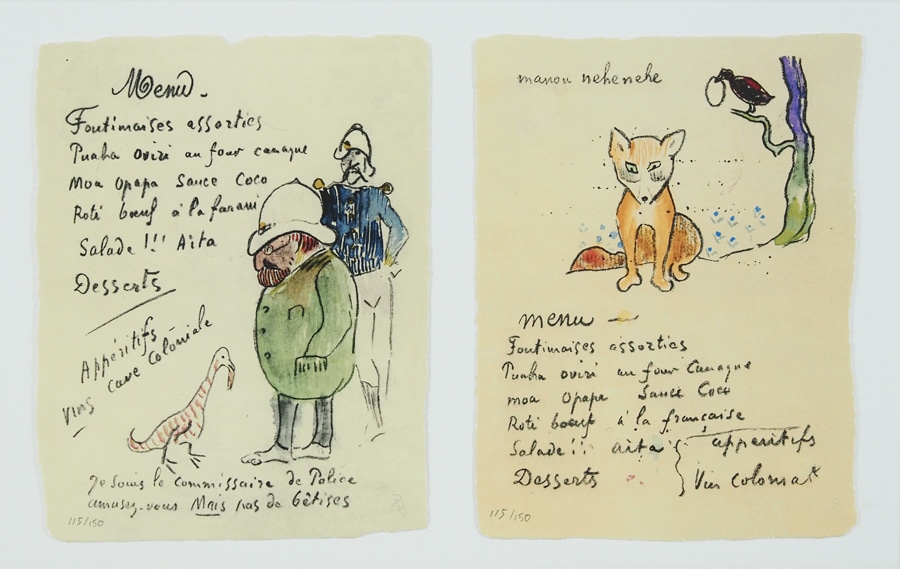 Menu.
Foutimaises assorties
Puaha oviri au four canaque
Moa Opapa Sauce Coco
Roti bœuf à la farani
Salade!!! Aita
Desserts
Appéritifs
Vins cave Coloniale
Je suis le Commissaire de Police
amusez-vous Mais pas de bêtises
115/150
manou nehenehe
menu
Foutimaises assorties
Puaha oviri au four Canaque
moa Opape Sauce Coco
Roti bœuf à la française
Salade!! aita apperitifs
Desserts Vin
115/150